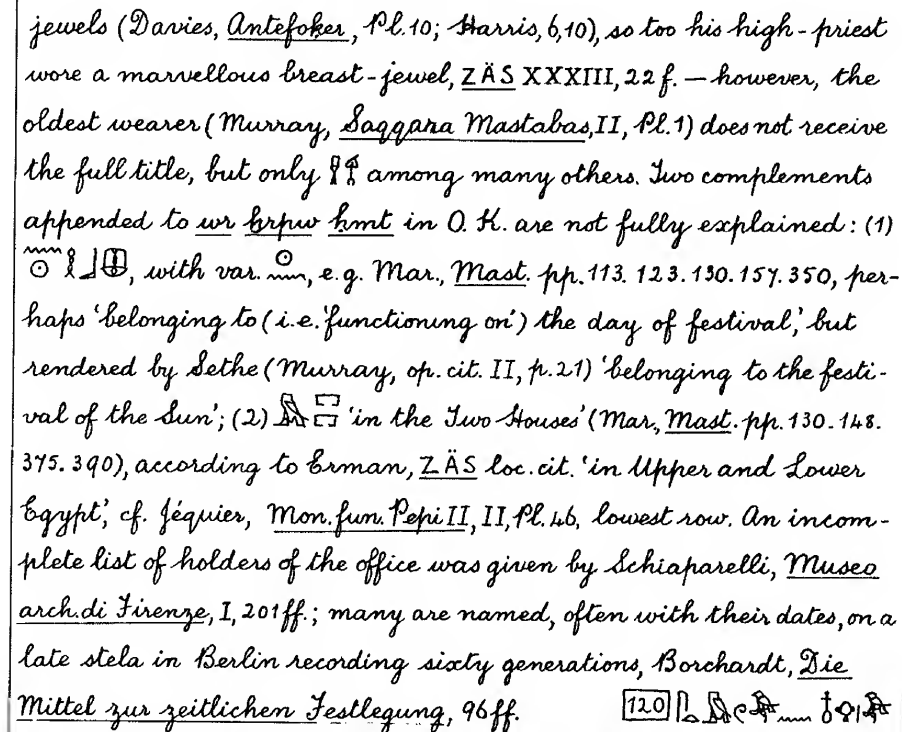 jewels (Davies, Antefoker, Pl.10; Harris, 6,10), so too his high-priest
wore a marvellous breast-jewel, ZÄS XXXIII, 22 f. — however, the
oldest wearer (Murray, Saqqara Mastabas, II, Pl.1) does not receive
the full title, but only among many others. Two complements
appended to wr ḫrpw ḥmt in O. K. are not fully explained: (1)
, with var. , e.g. Mar., Mast. pp. 113. 123. 130. 157. 350, per-
haps 'belonging to (i.e. 'functioning on') the day of festival,' but
rendered by Sethe (Murray, op. cit. II, p. 21) 'belonging to the festi-
val of the Sun'; (2) 'in the Two Houses' (Mar., Mast. pp. 130. 148.
375. 390), according to Erman, ZÄS loc. cit. 'in Upper and Lower
Egypt,' cf. Jéquier, Mon. fun. Pepi II, II, Pl. 46, lowest row. An incom-
plete list of holders of the office was given by Schiaparelli, Museo
arch. di Firenze, I, 201 ff.; many are named, often with their dates, on a
late stela in Berlin recording sixty generations, Borchardt, Die
Mittel zur zeitlichen Festlegung, 96 ff. 120